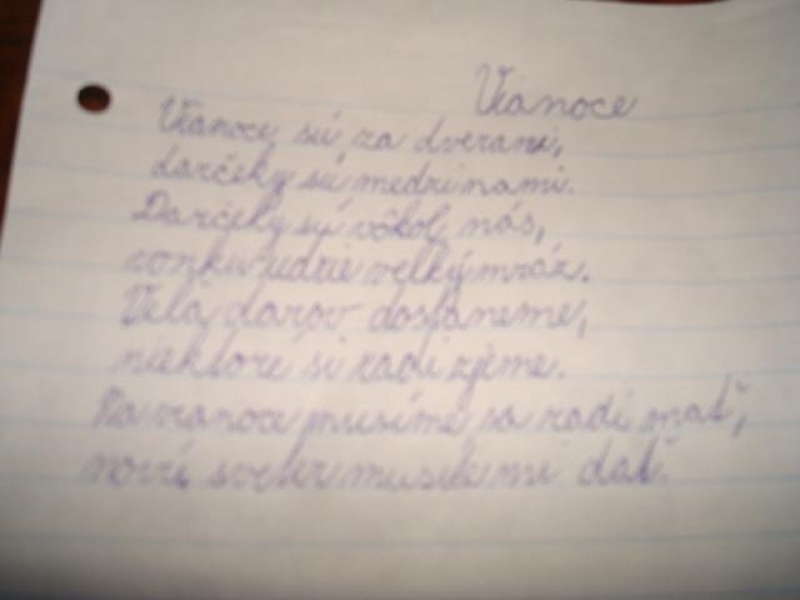 Vianoce
Vianoce sú za dverami,
darčeky sú medzi nami.
Darčeky sú vôkol nás,
vonku údrie velký mráz.
Velá darov dostaneme,
niektoré si radi zjeme.
Na vianoce musíme sa radi mať,
noví sveter musíte mi dať.